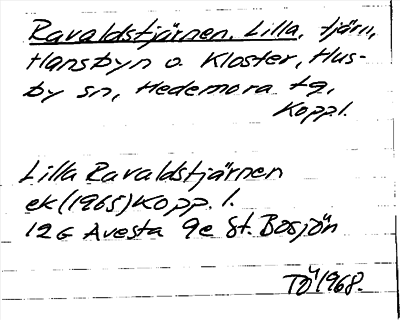 Ravaldstjärnen, Lilla, tjärn,
Hansbyn o. Kloster, Hus-
by sn, Hedemora tg,
Kopp l.
Lilla Ravaldstjärnen
ek (1965) Kopp. l.
12G Avesta 9e St. Bosjön
TÖ 1968.